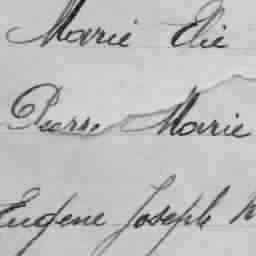 Marie Elie
Pierre Marie
Eugene Joseph